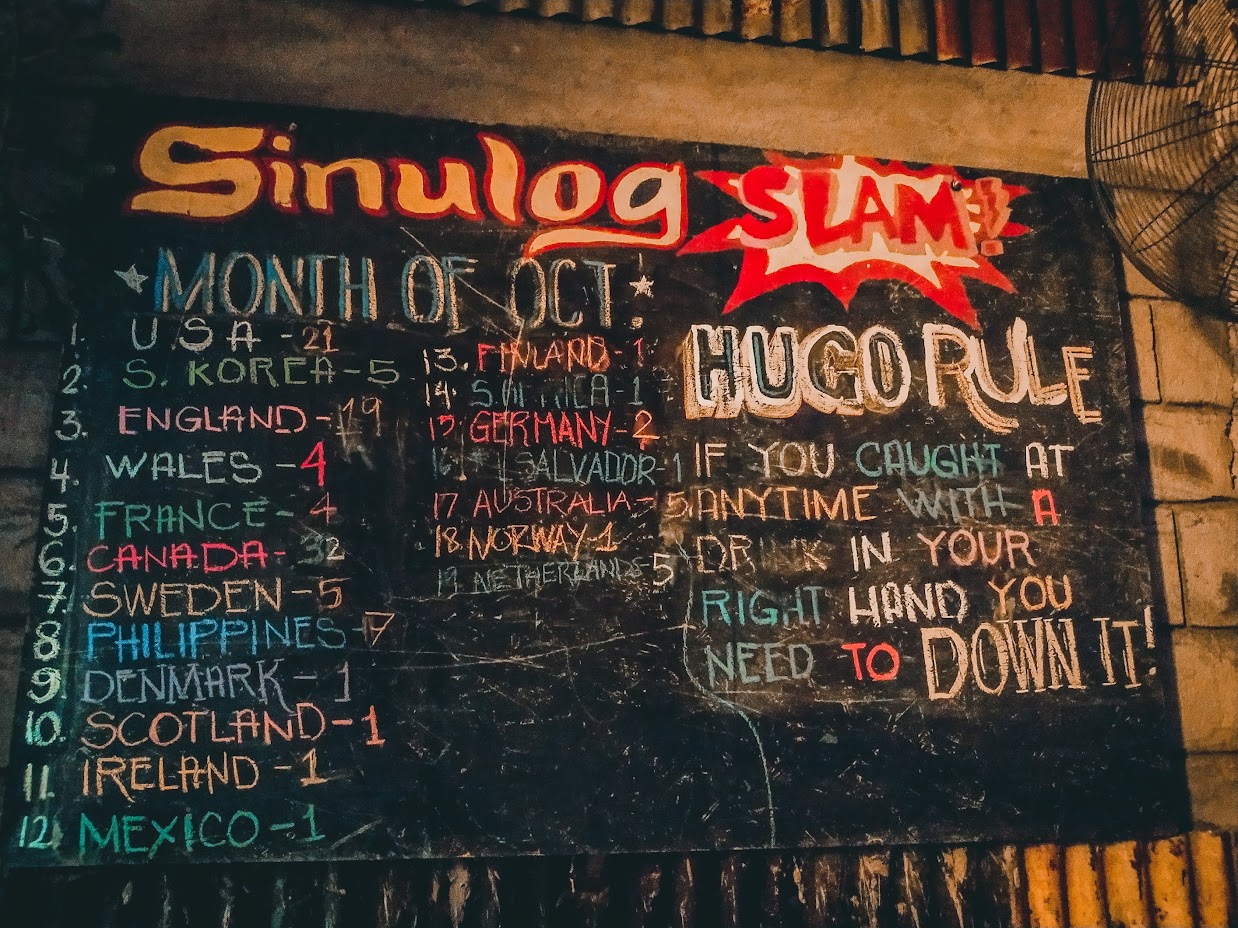 Sinulog SLAM!
MONTH OF OCT.
1. USA - 21
2. S. KOREA - 5
3. ENGLAND - 19
4. WALES - 4
5. FRANCE - 4
6. CANADA - 32
7. SWEDEN - 5
8 PHILIPPINES - 7
9. DENMARK - 1
10. SCOTLAND - 1
11. IRELAND - 1
12. MEXICO - 1
13. FINLAND - 1
14. - 1
15. GERMANY - 2
16. SALVADOR - 1
17 AUSTRALIA - 5
18. NORWAY - 1
19. NETHERLANDS - 5
HUGO RULE
IF YOU CAUGHT AT
ANYTIME WITH A
DRINK IN YOUR
RIGHT HAND YOU
NEED TO DOWN IT!